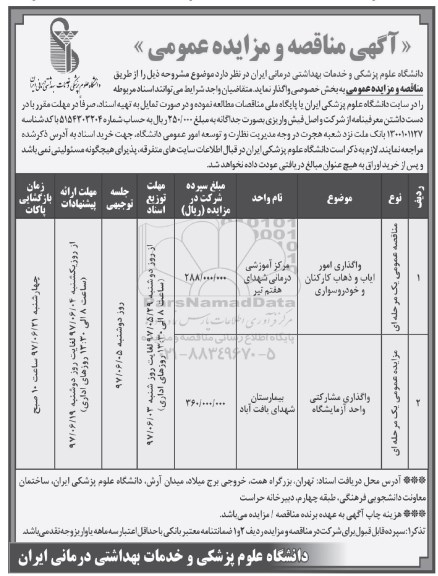 « آگهی مناقصه و مزایده عمومی »
دانشگاه علوم پزشکی و خدمات بهداشتی درمانی ایران
دانشگاه علوم پزشکی و خدمات بهداشتی درمانی ایران در نظر دارد موضوع مشروحه ذیل را از طریق
مناقصه و مزایده عمومی به بخش خصوصی واگذار نماید. متقاضیان واجد شرایط می توانند اسناد مربوطه
را در سایت دانشگاه علوم پزشکی ایران یا پایگاه ملی مناقصات مطالعه نموده و در صورت تمایل به تهیه اسناد، صرفا در مهلت مقرر با در
دست داشتن معرفینامه از شرکت و اصل فیش واریزی بصورت جداگانه به مبلغ ۲۵۰/۰۰۰ ریال به حساب شماره ۵۱۵۴۳۰۳۲۰۴ با کد شناسه
۱۳۰۰۱۰۱۱۲۷ بانک ملت نزد شعبه هجرت در وجه مدیریت نظارت و توسعه امور عمومی دانشگاه، جهت خرید اسناد به آدرس ذکر شده
مراجعه نمایند. لازم به ذکر است دانشگاه علوم پزشکی ایران در قبال اطلاعات سایت های متفرقه، پذیرای هیچگونه مسئولیتی نمی باشد
و پس از خرید اوراق به هیچ عنوان مبالغ دریافتی عودت داده نخواهد شد.
ردیف
نوع
موضوع
نام واحد
مبلغ سپرده شرکت در مزایده (ریال)
مهلت توزیع اسناد
جلسه توجیهی
مهلت ارائه پیشنهادات
زمان بازگشایی پاکات
۱
مناقصه عمومی یک مرحله ای
واگذاری امور
ایاب و ذهاب کارکنان
و خودروسواری
مرکز آموزشی
درمانی شهدای
هفتم تیر
۲۸۸/۰۰۰/۰۰۰
از روز دوشنبه ۹۷/۰۵/۲۹ لغایت روز شنبه ۹۷/۰۶/۰۳
(ساعت ۸ الی ۱۳:۳۰ روزهای اداری)
روز دوشنبه ۹۷/۰۶/۰۵
از روز یکشنبه ۹۷/۰۶/۰۴ لغایت روز دوشنبه ۹۷/۰۶/۱۹
(ساعت ۸ الی ۱۳:۳۰ روزهای اداری)
چهارشنبه ۹۷/۰۶/۲۱ ساعت ۱۰ صبح
۲
مزایده عمومی یک مرحله ای
واگذاری مشارکتی
واحد آزمایشگاه
بیمارستان
شهدای یافت آباد
۳۶۰/۰۰۰/۰۰۰
ParsNamadData
۰۲۱-۸۸۳۴۹۶۷۰-۵
*** آدرس محل دریافت اسناد: تهران، بزرگراه همت، خروجی برج میلاد، میدان آرش، دانشگاه علوم پزشکی ایران، ساختمان
معاونت دانشجویی فرهنگی، طبقه چهارم، دبیرخانه حراست
*** هزینه چاپ آگهی به عهده برنده مناقصه / مزایده می باشد.
تذکر۱: سپرده قابل قبول برای شرکت در مناقصه و مزایده ردیف ۲و۱ ضمانتنامه معتبر بانکی با حداقل اعتبار سه ماهه یا واریز وجه نقد می باشد.
دانشگاه علوم پزشکی و خدمات بهداشتی درمانی ایران